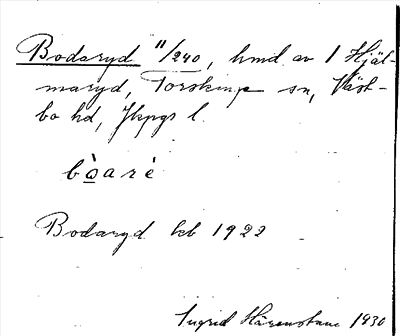 Bodaryd 11/240, hmd av 1 Hjäl-
maryd, Torskinge sn, Väst-
bo hd, Jkpgs l.
bòarè
Bodaryd kb 1922
Ingrid Härenstam 1930